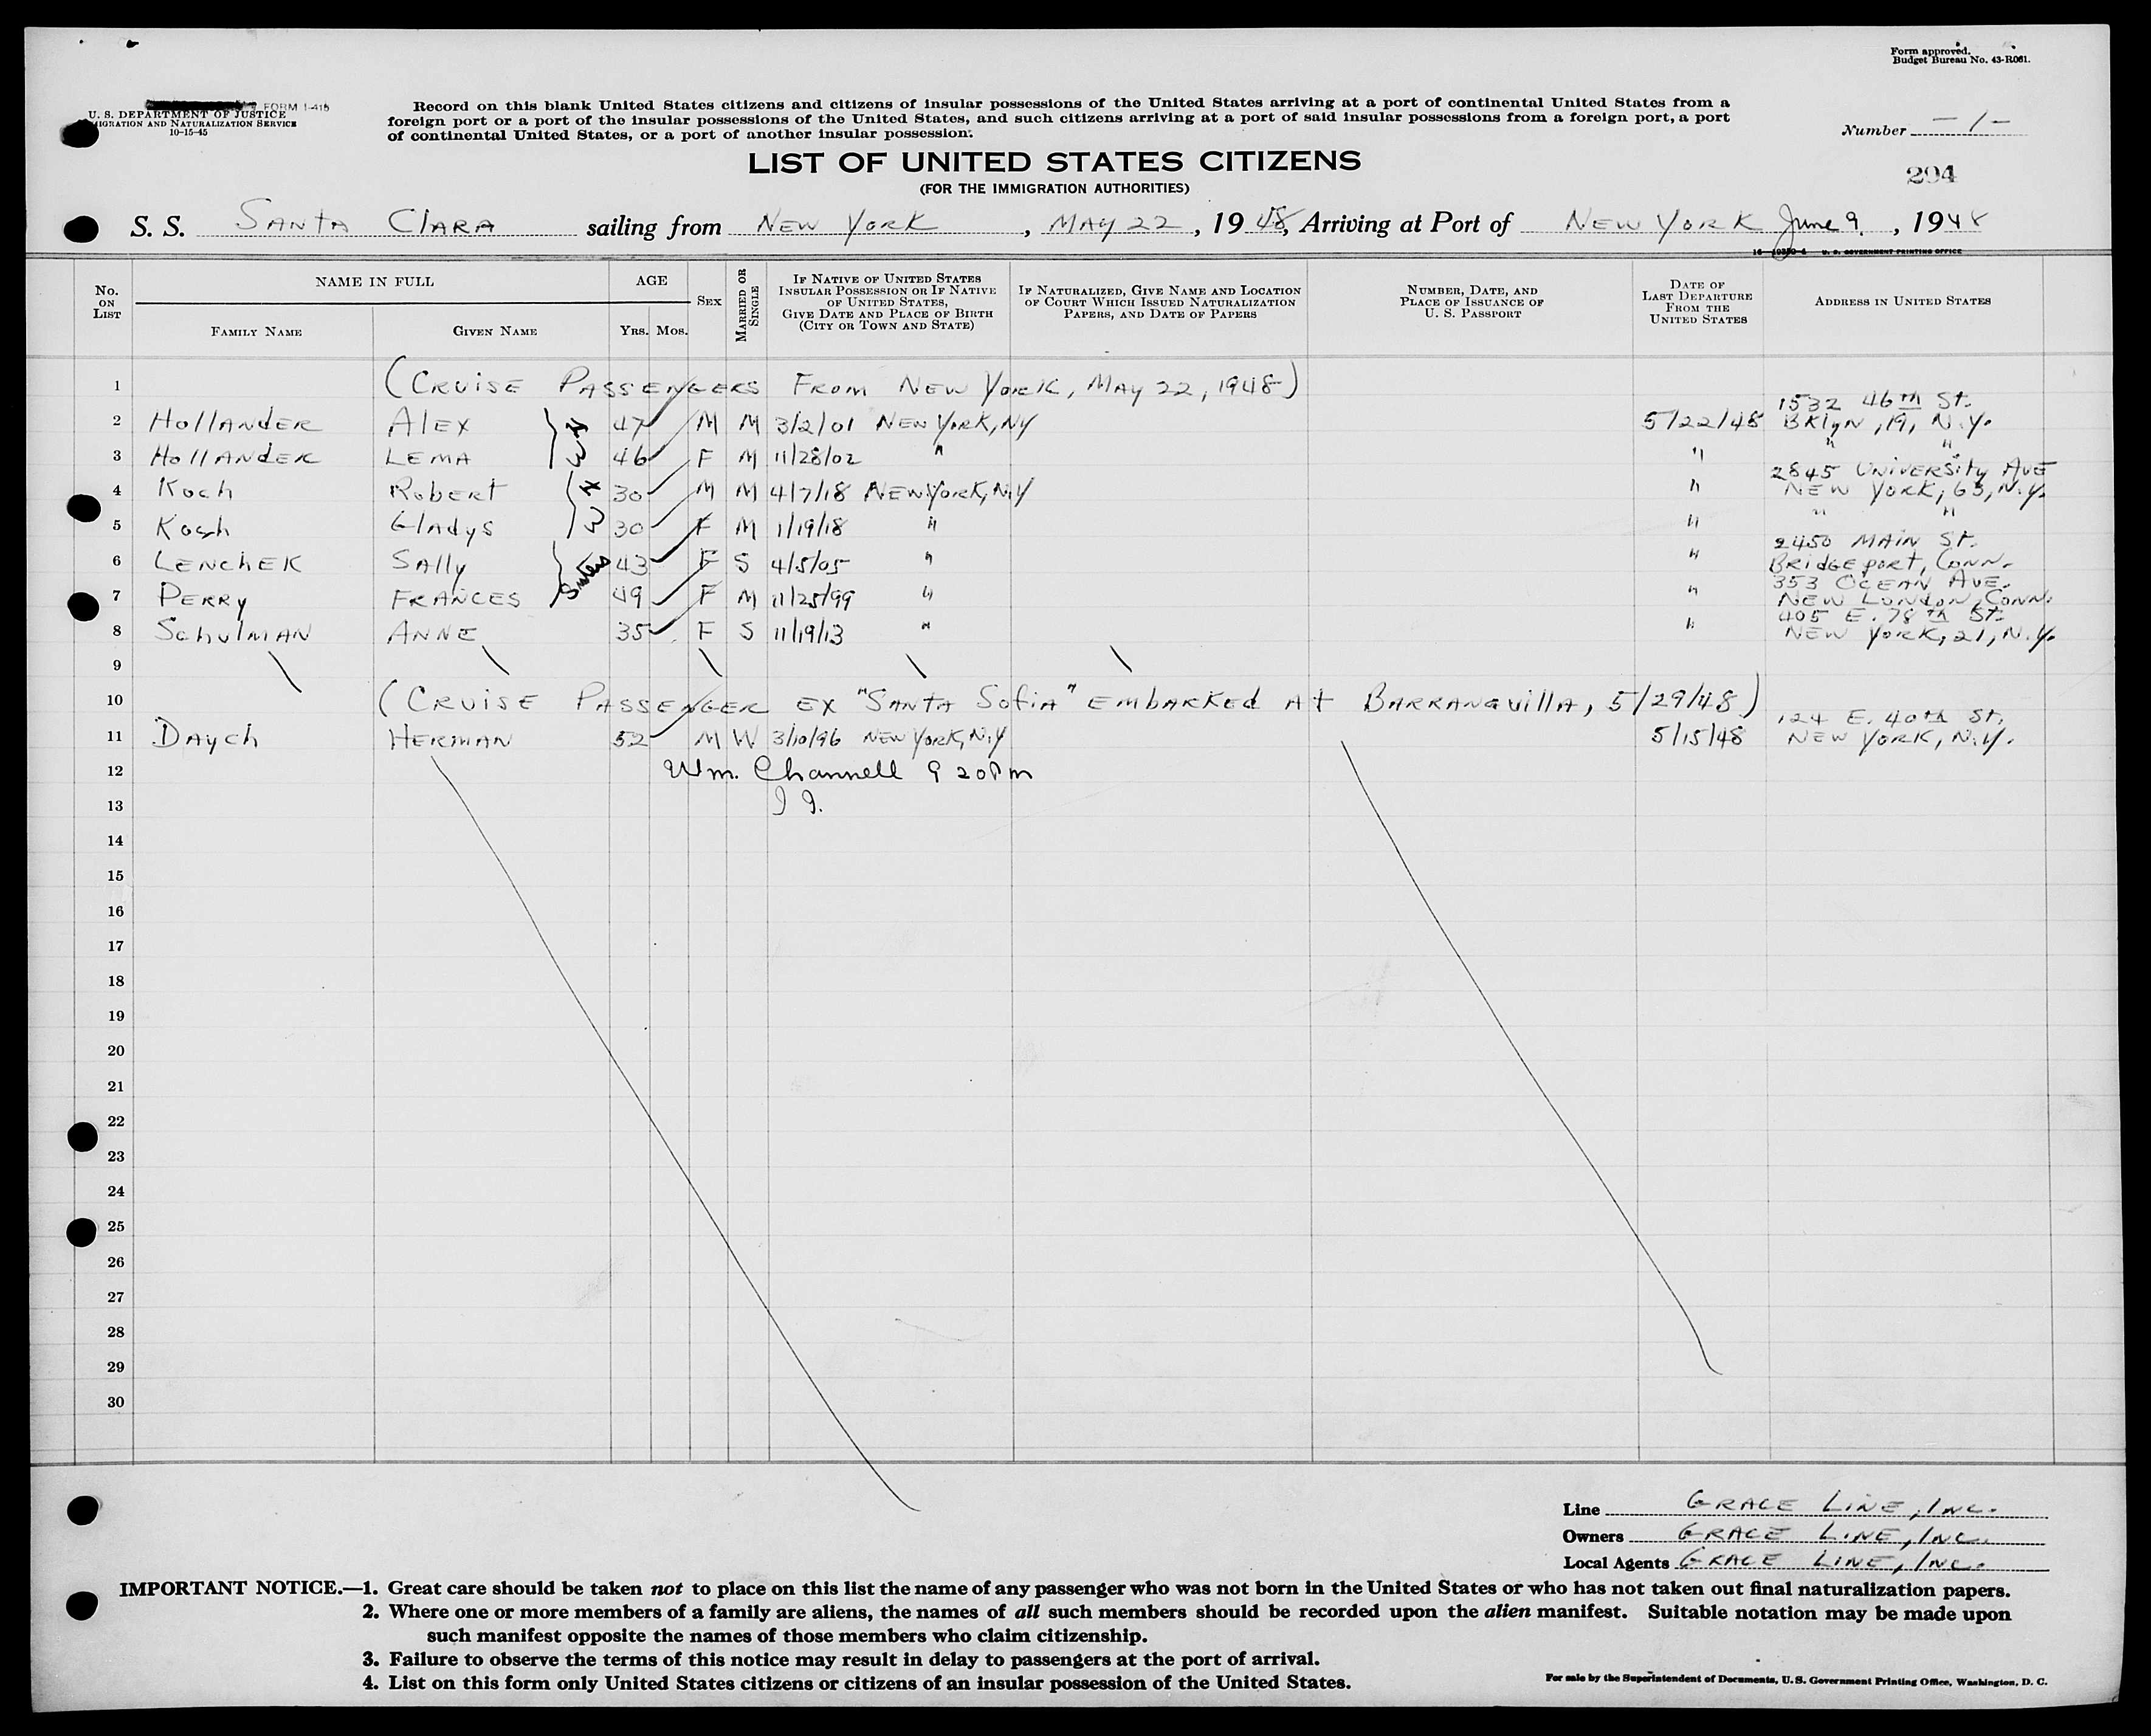 Form approved.
Budget Bureau No. 43-R061.
FORM I-415
U. S. DEPARTMENT OF JUSTICE
IMMIGRATION AND NATURALIZATION SERVICE
10-15-45
Record on this blank United States citizens and citizens of insular possessions of the United States arriving at a port of continental United States from a
foreign port or a port of the insular possessions of the United States, and such citizens arriving at a port of said insular possessions from a foreign port, a port
of continental United States, or a port of another insular possession.
Number -1-
LIST OF UNITED STATES CITIZENS
(FOR THE IMMIGRATION AUTHORITIES)
294
S. S. Santa Clara sailing from New York, May 22, 1948, Arriving at Port of New York June 9, 1948
16-10350-4 U. S. GOVERNMENT PRINTING OFFICE
No. on List
NAME IN FULL
Family Name Given Name
AGE
Yrs. Mos.
Sex
Married or Single
If Native of United States Insular Possession or if Native of United States, Give Date and Place of Birth (City or Town and State)
If Naturalized, Give Name and Location of Court Which Issued Naturalization Papers, and Date of Papers
Number, Date, and Place of Issuance of U. S. Passport
Date of Last Departure From the United States
Address in United States
1 (Cruise Passengers From New York, May 22, 1948)
2 Hollander Alex 47 M M 3/2/01 New York, NY 5/22/48 1532 46th St. Bklyn, 19, N.Y.
3 Hollander Lema 46 F M 11/28/02 " " " "
H W
4 Koch Robert 30 M M 4/7/18 New York, N.Y " 2845 University Ave New York, 63, N.Y.
5 Koch Gladys 30 F M 1/19/18 " " " "
H W
6 Lenchek Sally 43 F S 4/5/05 " " 2450 Main St. Bridgeport, Conn.
7 Perry Frances 49 F M 11/25/99 " " 353 Ocean Ave. New London, Conn.
Sisters
8 Schulman Anne 35 F S 11/19/13 " " 405 E. 78th St. New York, 21, N.Y.
9
10 (Cruise Passenger ex "Santa Sofia" embarked at Barranquilla, 5/29/48)
11 Daych Herman 52 M W 3/10/96 New York, N.Y 5/15/48 124 E. 40th St. New York, N.Y.
12 Wm. Channell 9 20 Pm
13 I I.
14
15
16
17
18
19
20
21
22
23
24
25
26
27
28
29
30
Line Grace Line, Inc.
Owners Grace Line, Inc.
Local Agents Grace Line, Inc.
IMPORTANT NOTICE.—1. Great care should be taken not to place on this list the name of any passenger who was not born in the United States or who has not taken out final naturalization papers.
2. Where one or more members of a family are aliens, the names of all such members should be recorded upon the alien manifest. Suitable notation may be made upon
such manifest opposite the names of those members who claim citizenship.
3. Failure to observe the terms of this notice may result in delay to passengers at the port of arrival.
4. List on this form only United States citizens or citizens of an insular possession of the United States.
For sale by the Superintendent of Documents, U. S. Government Printing Office, Washington, D. C.